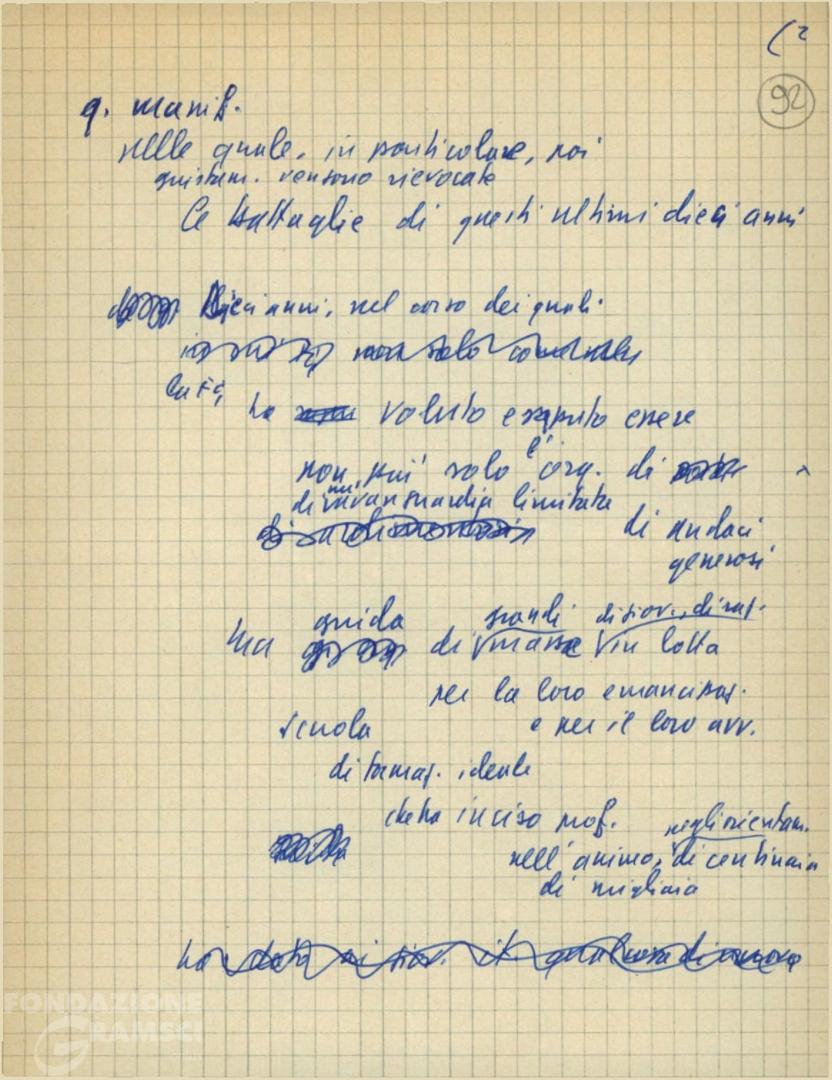 (2
92
q. manif.
nelle quale, in particolare, poi
giustam. vengono rievocate
le battaglie di questi ultimi dieci anni
Dieci anni, nel corso dei quali
non solo
la FGCI
ha voluto e saputo essere
non più solo l'org. di
di avanguardia limitate
di audaci
generosi
ma guida grandi di giov., di rag.
di masse in lotta
per la loro emancipaz.
scuola e per il loro avv.
di formaz. ideale
che ha inciso prof. negli orientam.
nell'animo, di centinaia
di migliaia
ha dato ai giov. it. qualcosa di nuovo
FONDAZIONE
GRAMSCI